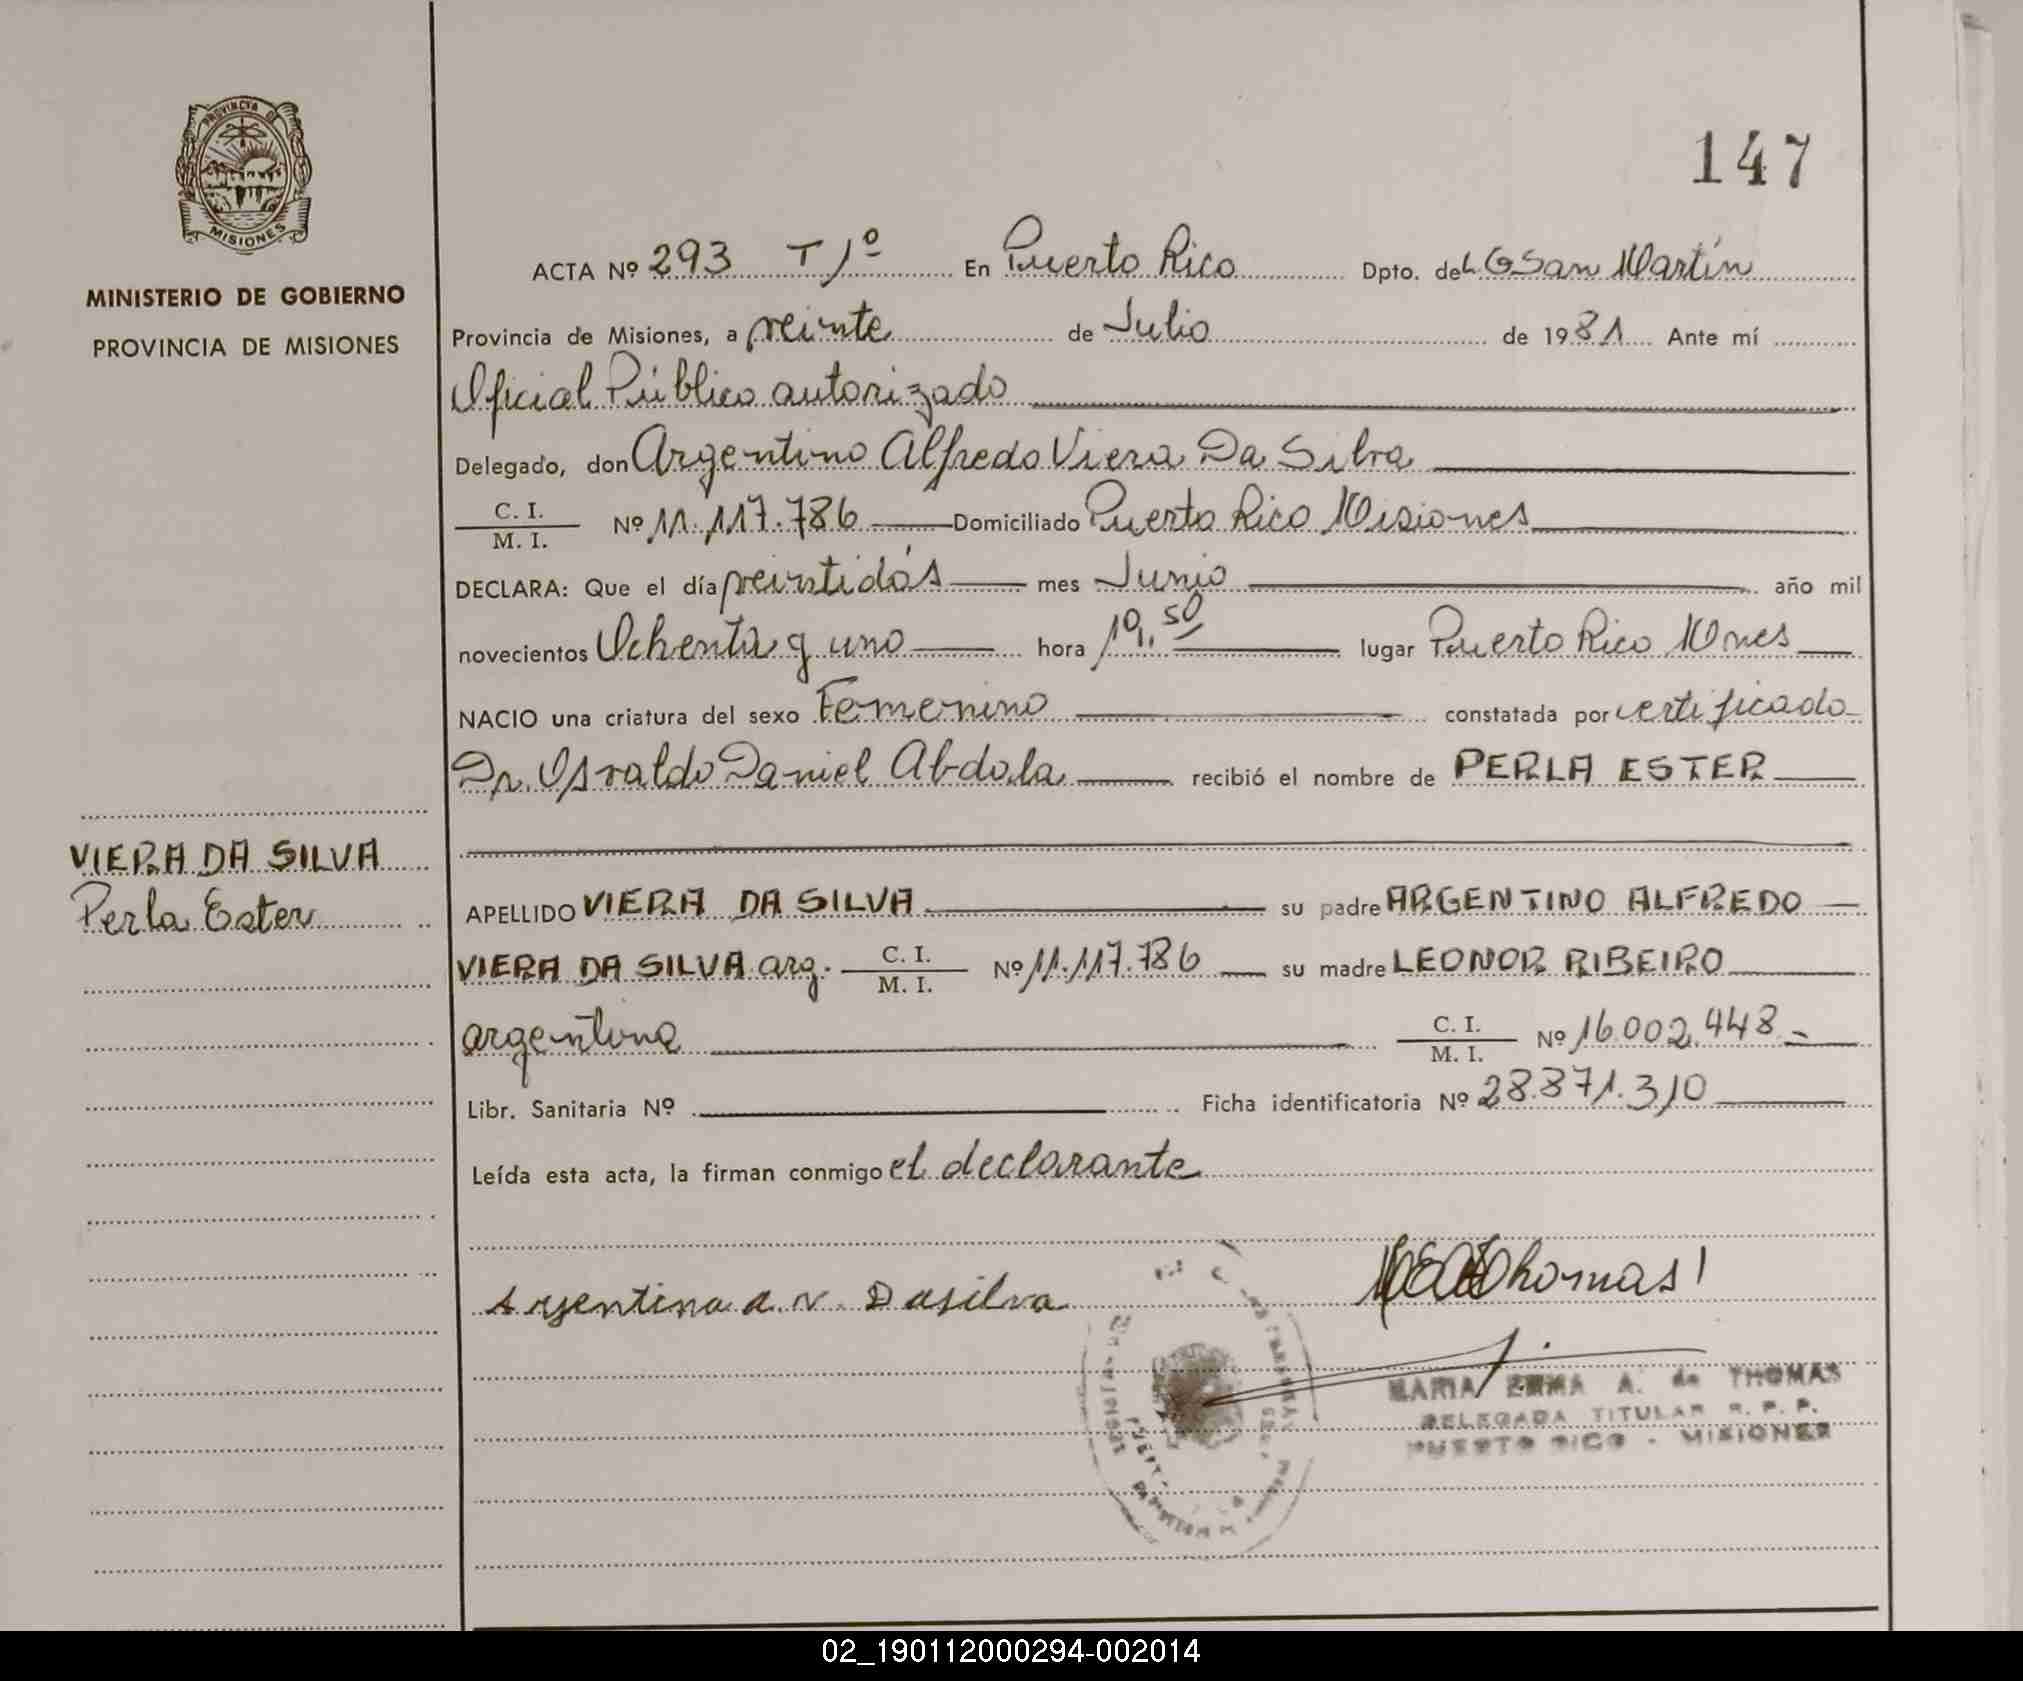 147
PROVINCIA DE
MISIONES
MINISTERIO DE GOBIERNO
PROVINCIA DE MISIONES
ACTA Nº 293 T 1º En Puerto Rico Dpto. del L G San Martín
Provincia de Misiones, a veinte de Julio de 1981 Ante mí
Oficial Público autorizado
Delegado, don Argentino Alfredo Viera Da Silva
C. I. / M. I. Nº 11.117.786 Domiciliado Puerto Rico Misiones
DECLARA: Que el día veintidós mes Junio año mil
novecientos Ochenta y uno hora 10,50 lugar Puerto Rico Mnes
NACIO una criatura del sexo Femenino constatada por certificado
Dr. Osvaldo Daniel Abdola recibió el nombre de PERLA ESTER
VIERA DA SILVA
Perla Ester
APELLIDO VIERA DA SILVA su padre ARGENTINO ALFREDO
VIERA DA SILVA arg. C. I. / M. I. Nº 11.117.786 su madre LEONOR RIBEIRO
argentina C. I. / M. I. Nº 16.002.448
Libr. Sanitaria Nº Ficha identificatoria Nº 28.871.310
Leída esta acta, la firman conmigo el declarante
Argentino a. v. Dasilva Thomas
MARIA EMMA A. de THOMAS
DELEGADA TITULAR R. P. P.
PUERTO RICO - MISIONES
02_190112000294-002014